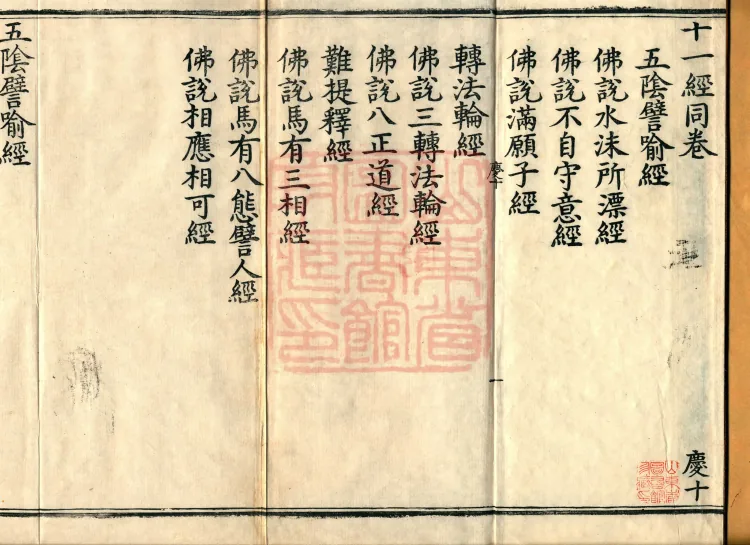 十一經同卷
慶十
五陰譬喻經
佛說水沫所漂經
佛說不自守意經
佛說滿願子經
慶十
一
轉法輪經
佛說三轉法輪經
佛說八正道經
難提釋經
佛說馬有三相經
佛說馬有八態譬人經
佛說相應相可經
五陰譬喻經
山東省
圖書館
珍藏印